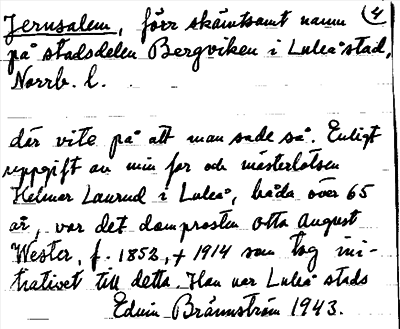 Jerusalem, förr skämtsamt namn (4
på stadsdelen Bergviken i Luleå stad,
Norrb. l.
där vite på att man sade så. Enligt
uppgift av min far och mästerlotsen
Helmer Laurud i Luleå, båda över 65
år, var det domprosten Otto August
Wester, f. 1852, + 1914 som tog ini-
tiativet till detta. Han var Luleå stads
Edvin Brännström 1943.